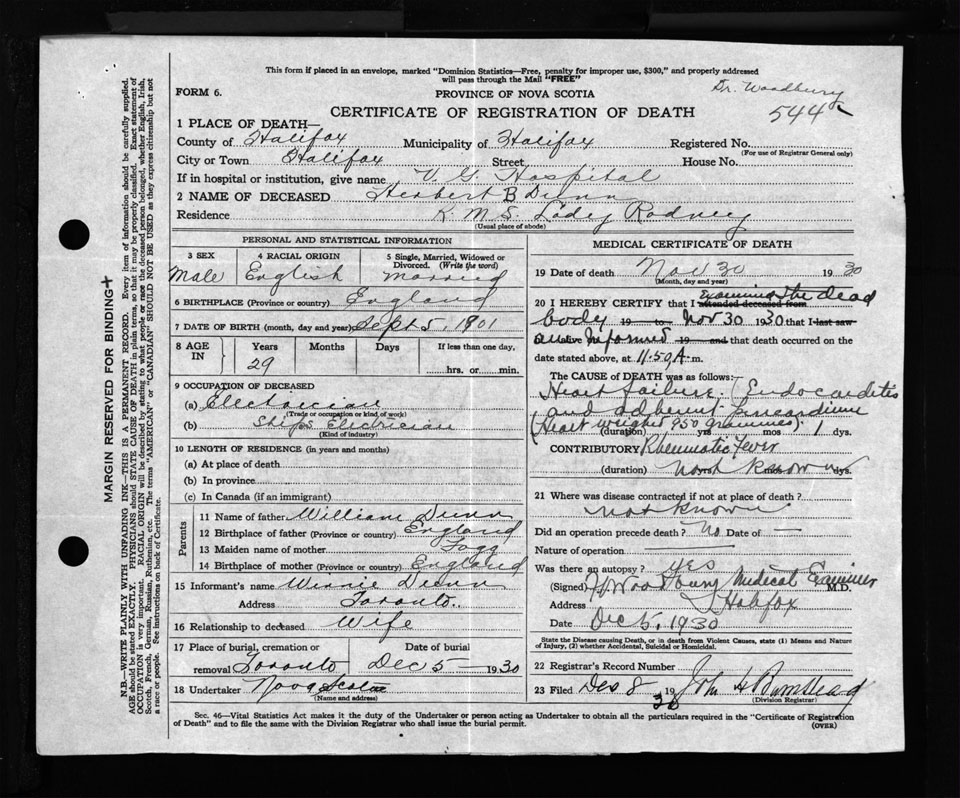 This form if placed in an envelope, marked "Dominion Statistics—Free, penalty for improper use, $300," and properly addressed
will pass through the Mail "FREE"
Dr. Woodbury
FORM 6.
PROVINCE OF NOVA SCOTIA
544
CERTIFICATE OF REGISTRATION OF DEATH
1 PLACE OF DEATH—
County of Halifax Municipality of Halifax Registered No.
(For use of Registrar General only)
City or Town Halifax Street House No.
If in hospital or institution, give name V. G. Hospital
2 NAME OF DECEASED Herbert B Dunn
Residence R. M. S. Lady Rodney
(Usual place of abode)
PERSONAL AND STATISTICAL INFORMATION
3 SEX 4 RACIAL ORIGIN 5 Single, Married, Widowed or
Divorced. (Write the word)
Male English Married
6 BIRTHPLACE (Province or country) England
7 DATE OF BIRTH (month, day and year) Sept 5, 1901
8 AGE IN Years Months Days If less than one day,
29 hrs. or min.
9 OCCUPATION OF DECEASED
(a) Electrician
(Trade or occupation or kind of work)
(b) Ships Electrician
(Kind of industry)
10 LENGTH OF RESIDENCE (in years and months)
(a) At place of death
(b) In province
(c) In Canada (if an immigrant)
Parents
11 Name of father William Dunn
12 Birthplace of father (Province or country) England
13 Maiden name of mother
14 Birthplace of mother (Province or country) England
15 Informant's name Winnie Dunn
Address Toronto
16 Relationship to deceased Wife
17 Place of burial, cremation or Date of burial
removal Toronto Dec 5 1930
18 Undertaker Nova Scotia
(Name and address)
MEDICAL CERTIFICATE OF DEATH
19 Date of death Nov 30 1930
(Month, day and year)
20 I HEREBY CERTIFY that I attended deceased from examining the dead
body 19 to Nov 30 1930 that I last saw
alive informed 19 and that death occurred on the
date stated above, at 11.50 A m.
The CAUSE OF DEATH was as follows:
Heart failure. (Endocarditis
and adherent pericardium
(Heart weighed 950 grammes).
(duration) yrs mos 1 dys.
CONTRIBUTORY Rheumatic Fever
(duration) not known dys.
21 Where was disease contracted if not at place of death?
not known
Did an operation precede death? No Date of —
Nature of operation
Was there an autopsy? yes
(Signed) Medical Examiner M.D.
Address Halifax
Date Dec 5, 1930
State the Disease causing Death, or in death from Violent Causes, state (1) Means and Nature
of Injury, (2) whether Accidental, Suicidal or Homicidal.
22 Registrar's Record Number
23 Filed Dec 8 1930 John H Barnstead
(Division Registrar)
Sec. 46—Vital Statistics Act makes it the duty of the Undertaker or person acting as Undertaker to obtain all the particulars required in the "Certificate of Registration
of Death" and to file the same with the Division Registrar who shall issue the burial permit.
(OVER)
MARGIN RESERVED FOR BINDING
N.B.—WRITE PLAINLY WITH UNFADING INK—THIS IS A PERMANENT RECORD. Every item of information should be carefully supplied.
AGE should be stated EXACTLY. PHYSICIANS should STATE CAUSE OF DEATH in plain terms, so that it may be properly classified. Exact statement of
OCCUPATION is very important. RACIAL ORIGIN will be described by stating to what people or race the deceased person belonged, whether English, Irish,
Scotch, French, German, Russian, Ruthenian, etc. The terms "AMERICAN" or "CANADIAN" SHOULD NOT BE USED as they express citizenship but not
a race or people. See instructions on back of Certificate.